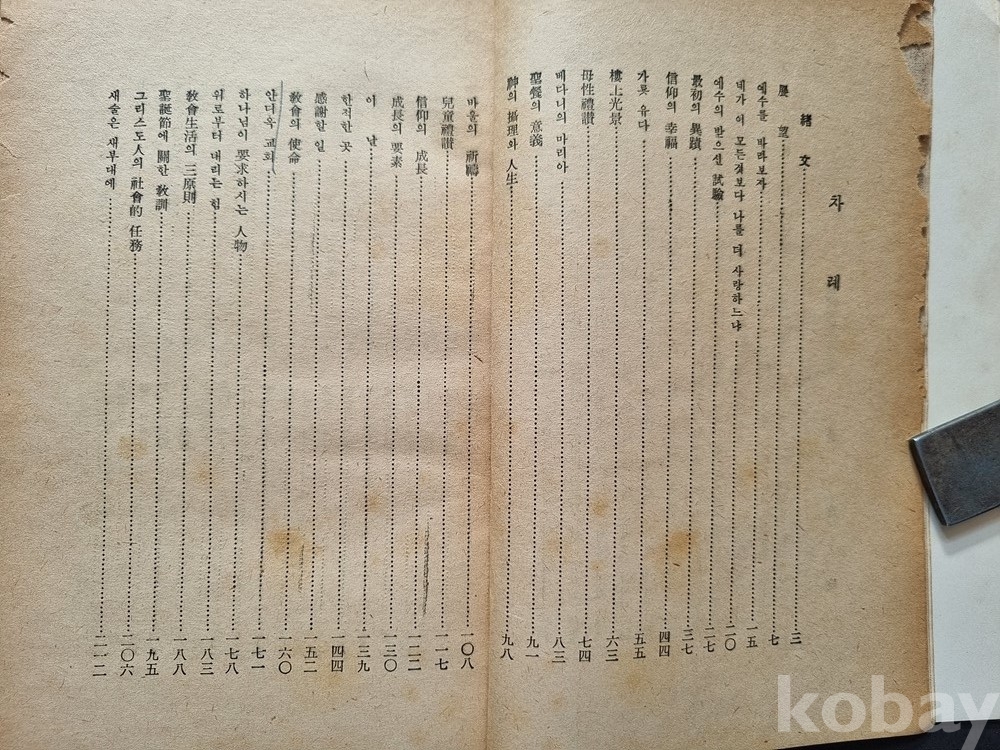 차례
緖文 三
展望 七
예수를 바라보자 一五
네가 이 모든것보다 나를 더 사랑하느냐 二〇
예수의 받으신 試驗 二七
最初의 異蹟 三七
信仰의 幸福 四四
가룟 유다 五五
樓上光景 六三
母性禮讃 七四
베다니의 마리아 八三
聖餐의 意義 九一
神의 攝理와 人生 九八
마을의 祈禱 一〇八
兒童禮讃 一一七
信仰의 成長 一二二
成長의 要素 一三〇
이 날 一三九
한적한 곳 一四四
感謝할 일 一五二
敎會의 使命 一六〇
안디옥 교회 一七一
하나님이 要求하시는 人物 一七八
위로부터 내리는 힘 一八三
敎會生活의 三原則 一八八
聖誕節에 關한 敎訓 一九五
그리스도人의 社會的 任務 二〇六
새술은 새부대에 二一二
kobay